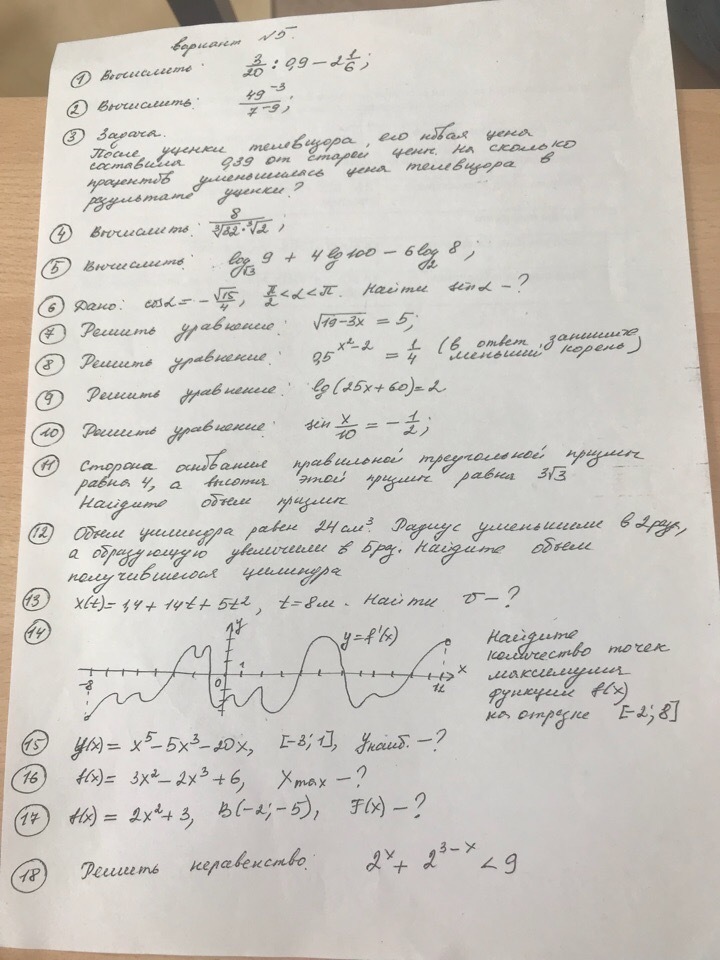 вариант №5.
① Вычислить: 3/20 : 0,9 − 2 1/6;
② Вычислить: 49⁻³/7⁻⁹;
③ Задача.
После уценки телевизора, его новая цена
составила 0,39 от старой цены. На сколько
процентов уменьшилась цена телевизора в
результате уценки?
④ Вычислить: 8/(∛32·∛2);
⑤ Вычислить: log_√3 9 + 4 lg 100 − 6 log_2 8;
⑥ Дано: cos α = −√15/4, π/2 < α < π. Найти sin α − ?
⑦ Решить уравнение: √(19−3x) = 5;
⑧ Решить уравнение: 0,5^(x²−2) = 1/4 (в ответ запишите
меньший корень)
⑨ Решить уравнение: lg(25x+60)=2
⑩ Решить уравнение: sin x/10 = −1/2;
⑪ Сторона основания правильной треугольной призмы
равна 4, а высота этой призмы равна 3√3
Найдите объем призмы
⑫ Объем цилиндра равен 24 см³. Радиус уменьшили в 2 раза,
а образующую увеличили в 5 раз. Найдите объем
получившегося цилиндра
⑬ x(t)= 1,4 + 14t + 5t², t=8м. Найти υ−?
⑭ y y=f'(x)
−8 0 1 x 12
Найдите
количество точек
максимума
функции f(x)
на отрезке [−2; 8]
⑮ y(x) = x⁵−5x³−20x, [−3; 1], y наиб. −?
⑯ f(x) = 3x²−2x³+6, x max −?
⑰ f(x) = 2x²+3, B(−2; −5), F(x) −?
⑱ Решить неравенство: 2ˣ + 2³⁻ˣ < 9